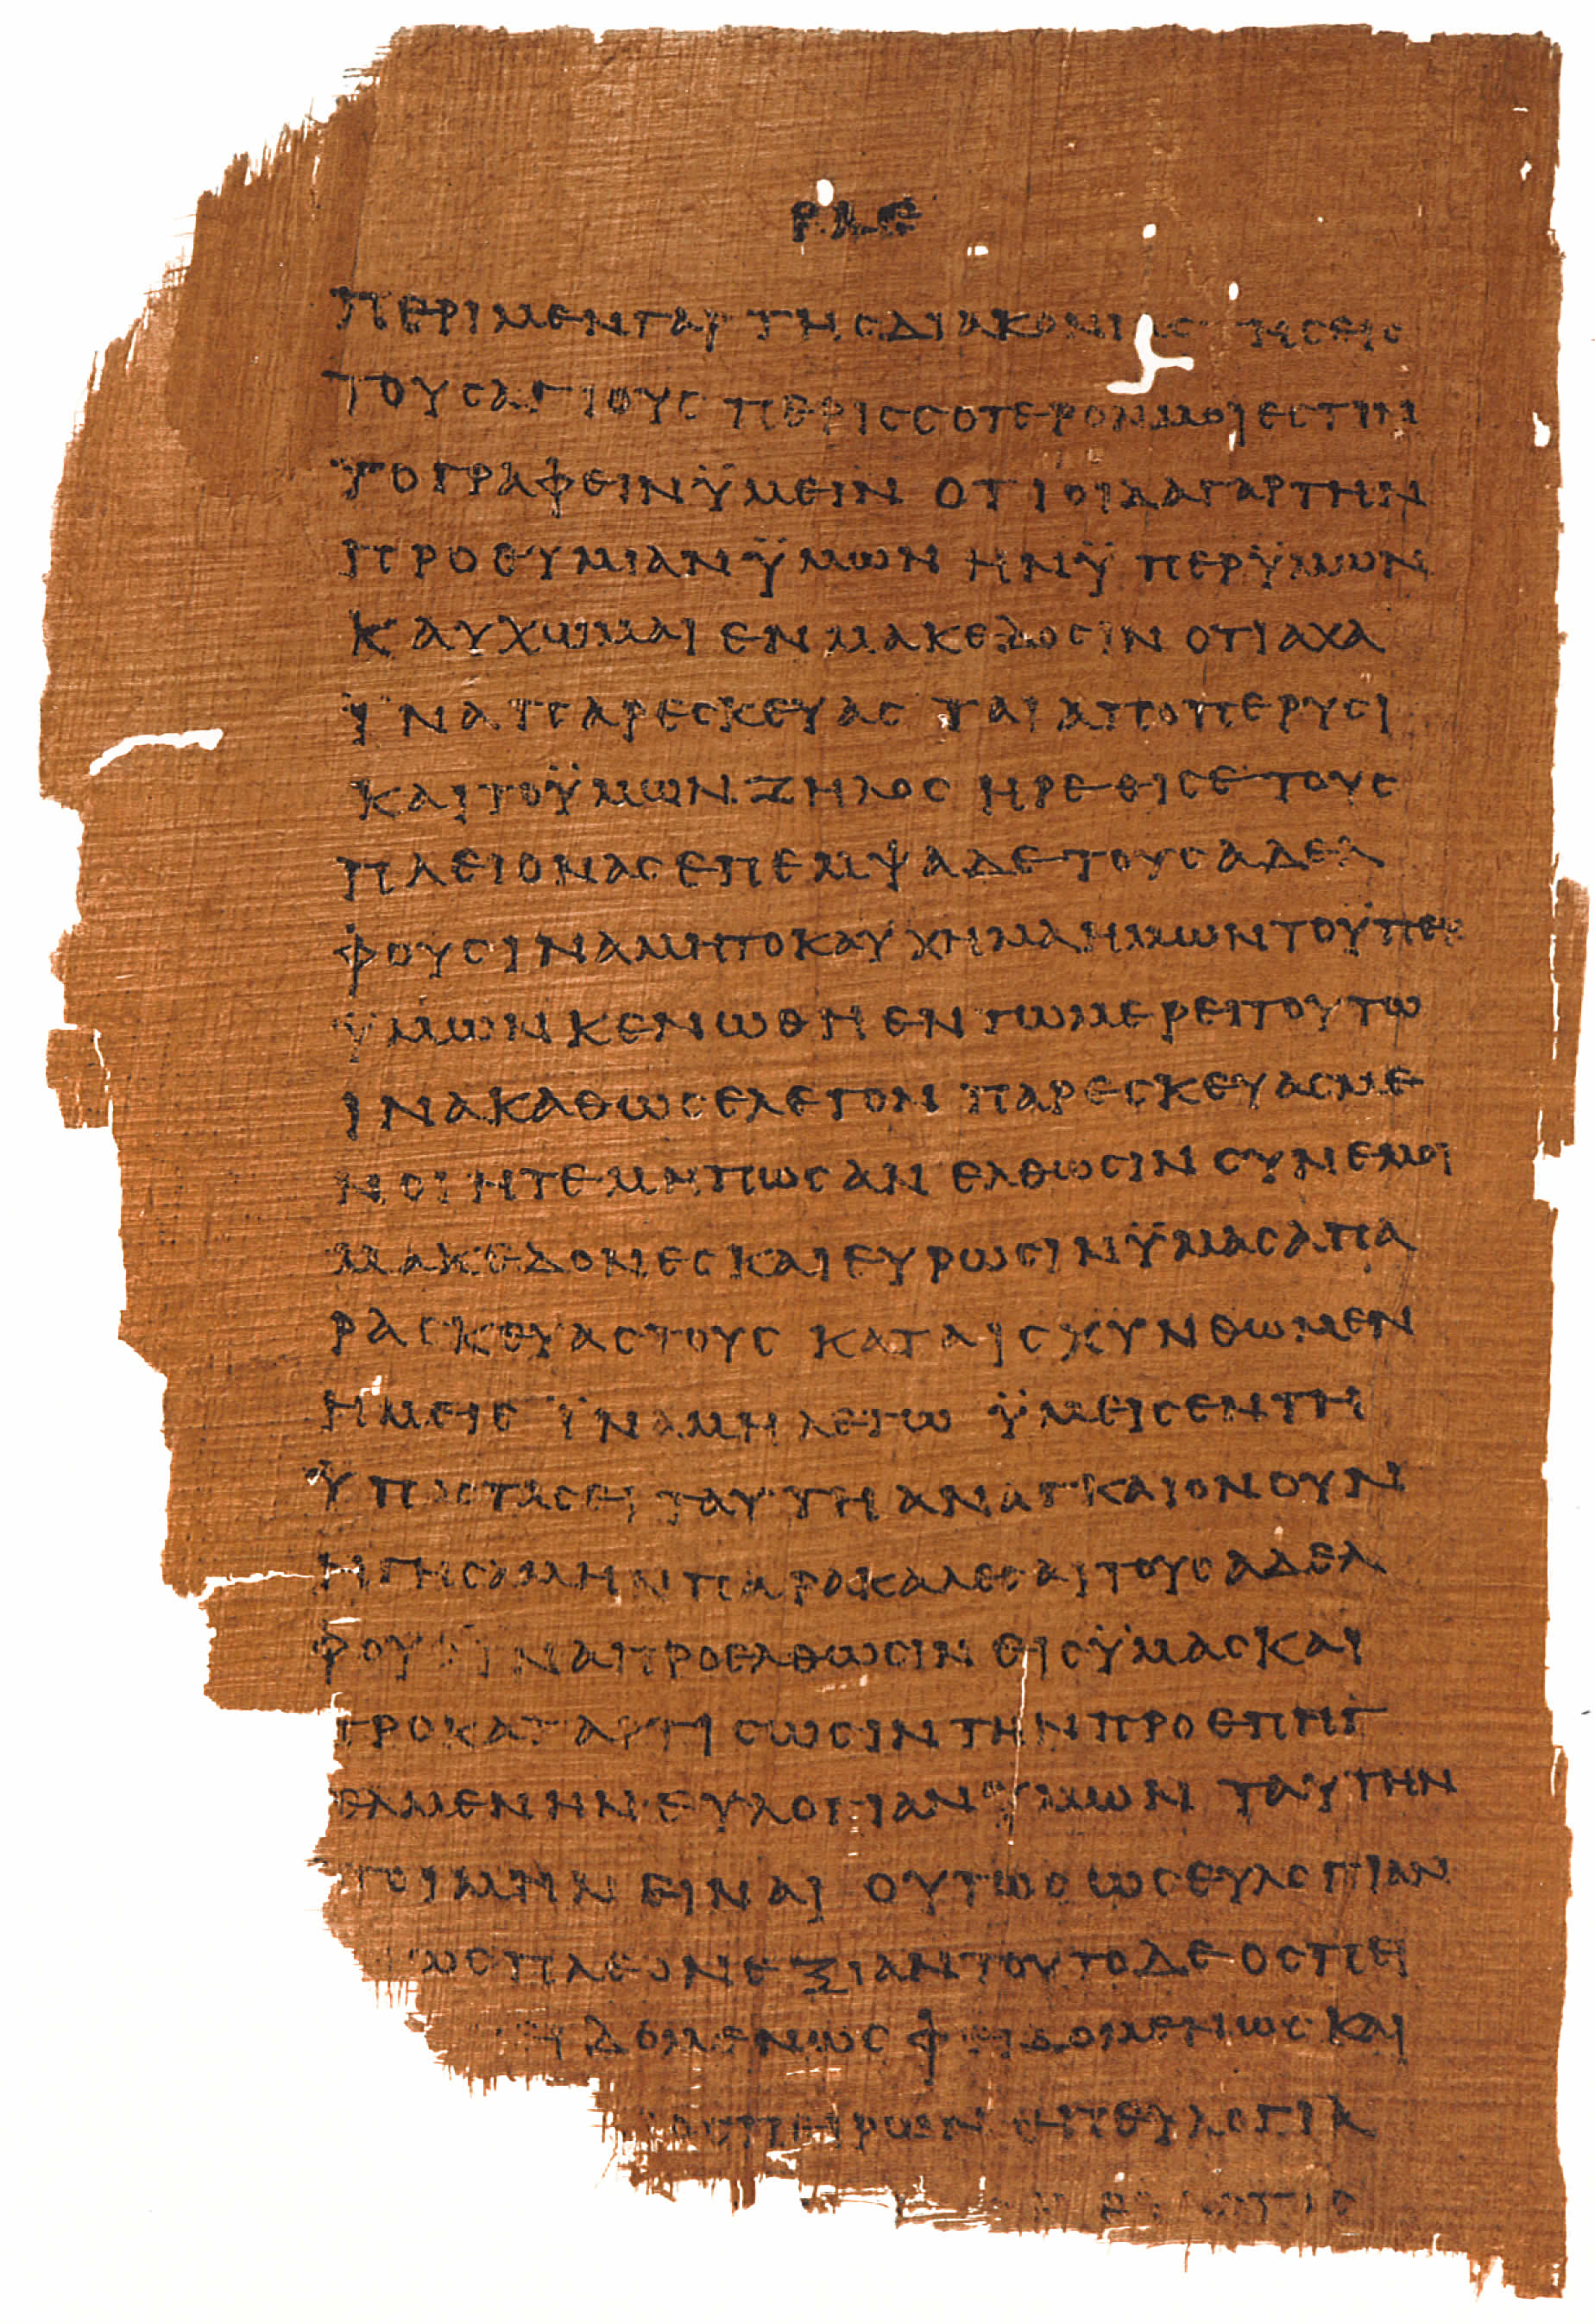 ΡΛΕ
ΠΕΡΙΜΕΝΓΑΡΤΗϹΔΙΑΚΟΝΙΑϹ ΤΗϹΕΙϹ
ΤΟΥϹΑΓΙΟΥϹ ΠΕΡΙϹϹΟΤΕΡΟΝΜΟΙΕϹΤΙΝ
ΤΟΓΡΑΦΕΙΝΫΜΕΙΝ ΟΤΙΟΙΔΑΓΑΡΤΗΝ
ΠΡΟΘΥΜΙΑΝΫΜΩΝ ΗΝΫΠΕΡΫΜΩΝ
ΚΑΥΧΩΜΑΙΕΝΜΑΚΕΔΟϹΙΝ ΟΤΙΑΧΑ
ΪΝΑΠΑΡΕϹΚΕΥΑϹΤΑΙΑΠΟΠΕΡΥϹΙ
ΚΑΙΤΟΫΜΩΝΖΗΛΟϹ ΗΡΕΘΙϹΕΤΟΥϹ
ΠΛΕΙΟΝΑϹΕΠΕΜΨΑΔΕΤΟΥϹΑΔΕΛ
ΦΟΥϹΙΝΑΜΗΤΟΚΑΥΧΗΜΑΗΜΩΝΤΟΫΠΕΡ
ΫΜΩΝΚΕΝΩΘΗΕΝΤΩΜΕΡΕΙΤΟΥΤΩ
ΙΝΑΚΑΘΩϹΕΛΕΓΟΝ ΠΑΡΕϹΚΕΥΑϹΜΕ
ΝΟΙΗΤΕΜΗΠΩϹΑΝ ΕΛΘΩϹΙΝϹΥΝΕΜΟΙ
ΜΑΚΕΔΟΝΕϹΚΑΙΕΥΡΩϹΙΝΫΜΑϹΑΠΑ
ΡΑϹΚΕΥΑϹΤΟΥϹ ΚΑΤΑΙϹΧΥΝΘΩΜΕΝ
ΗΜΕΙϹ ΪΝΑΜΗΛΕΓΩ ΫΜΕΙϹΕΝΤΗ
ΫΠΟϹΤΑϹΕΙΤΑΥΤΗΑΝΑΓΚΑΙΟΝΟΥΝ
ΗΓΗϹΑΜΗΝΠΑΡΑΚΑΛΕϹΑΙΤΟΥϹΑΔΕΛ
ΦΟΥϹΪΝΑΠΡΟΕΛΘΩϹΙΝ ΕΙϹΫΜΑϹΚΑΙ
ΠΡΟΚΑΤΑΡΤΙϹΩϹΙΝΤΗΝΠΡΟΕΠΗΓ
ΕΛΜΕΝΗΝΕΥΛΟΓΙΑΝΫΜΩΝ ΤΑΥΤΗΝ
ΤΟΙΜΗΝΕΙΝΑΙ ΟΥΤΩϹΩϹΕΥΛΟΓΙΑΝ
ΩϹΠΛΕΟΝΕΞΙΑΝΤΟΥΤΟΔΕΟϹΠΕΙ
ΙΔΟΜΕΝΩϹΦΕΙΔΟΜΕΝΩϹΚΑΙ
ΟϹΠΕΙΡΩΝΕΠΕΥΛΟΓΙΑ